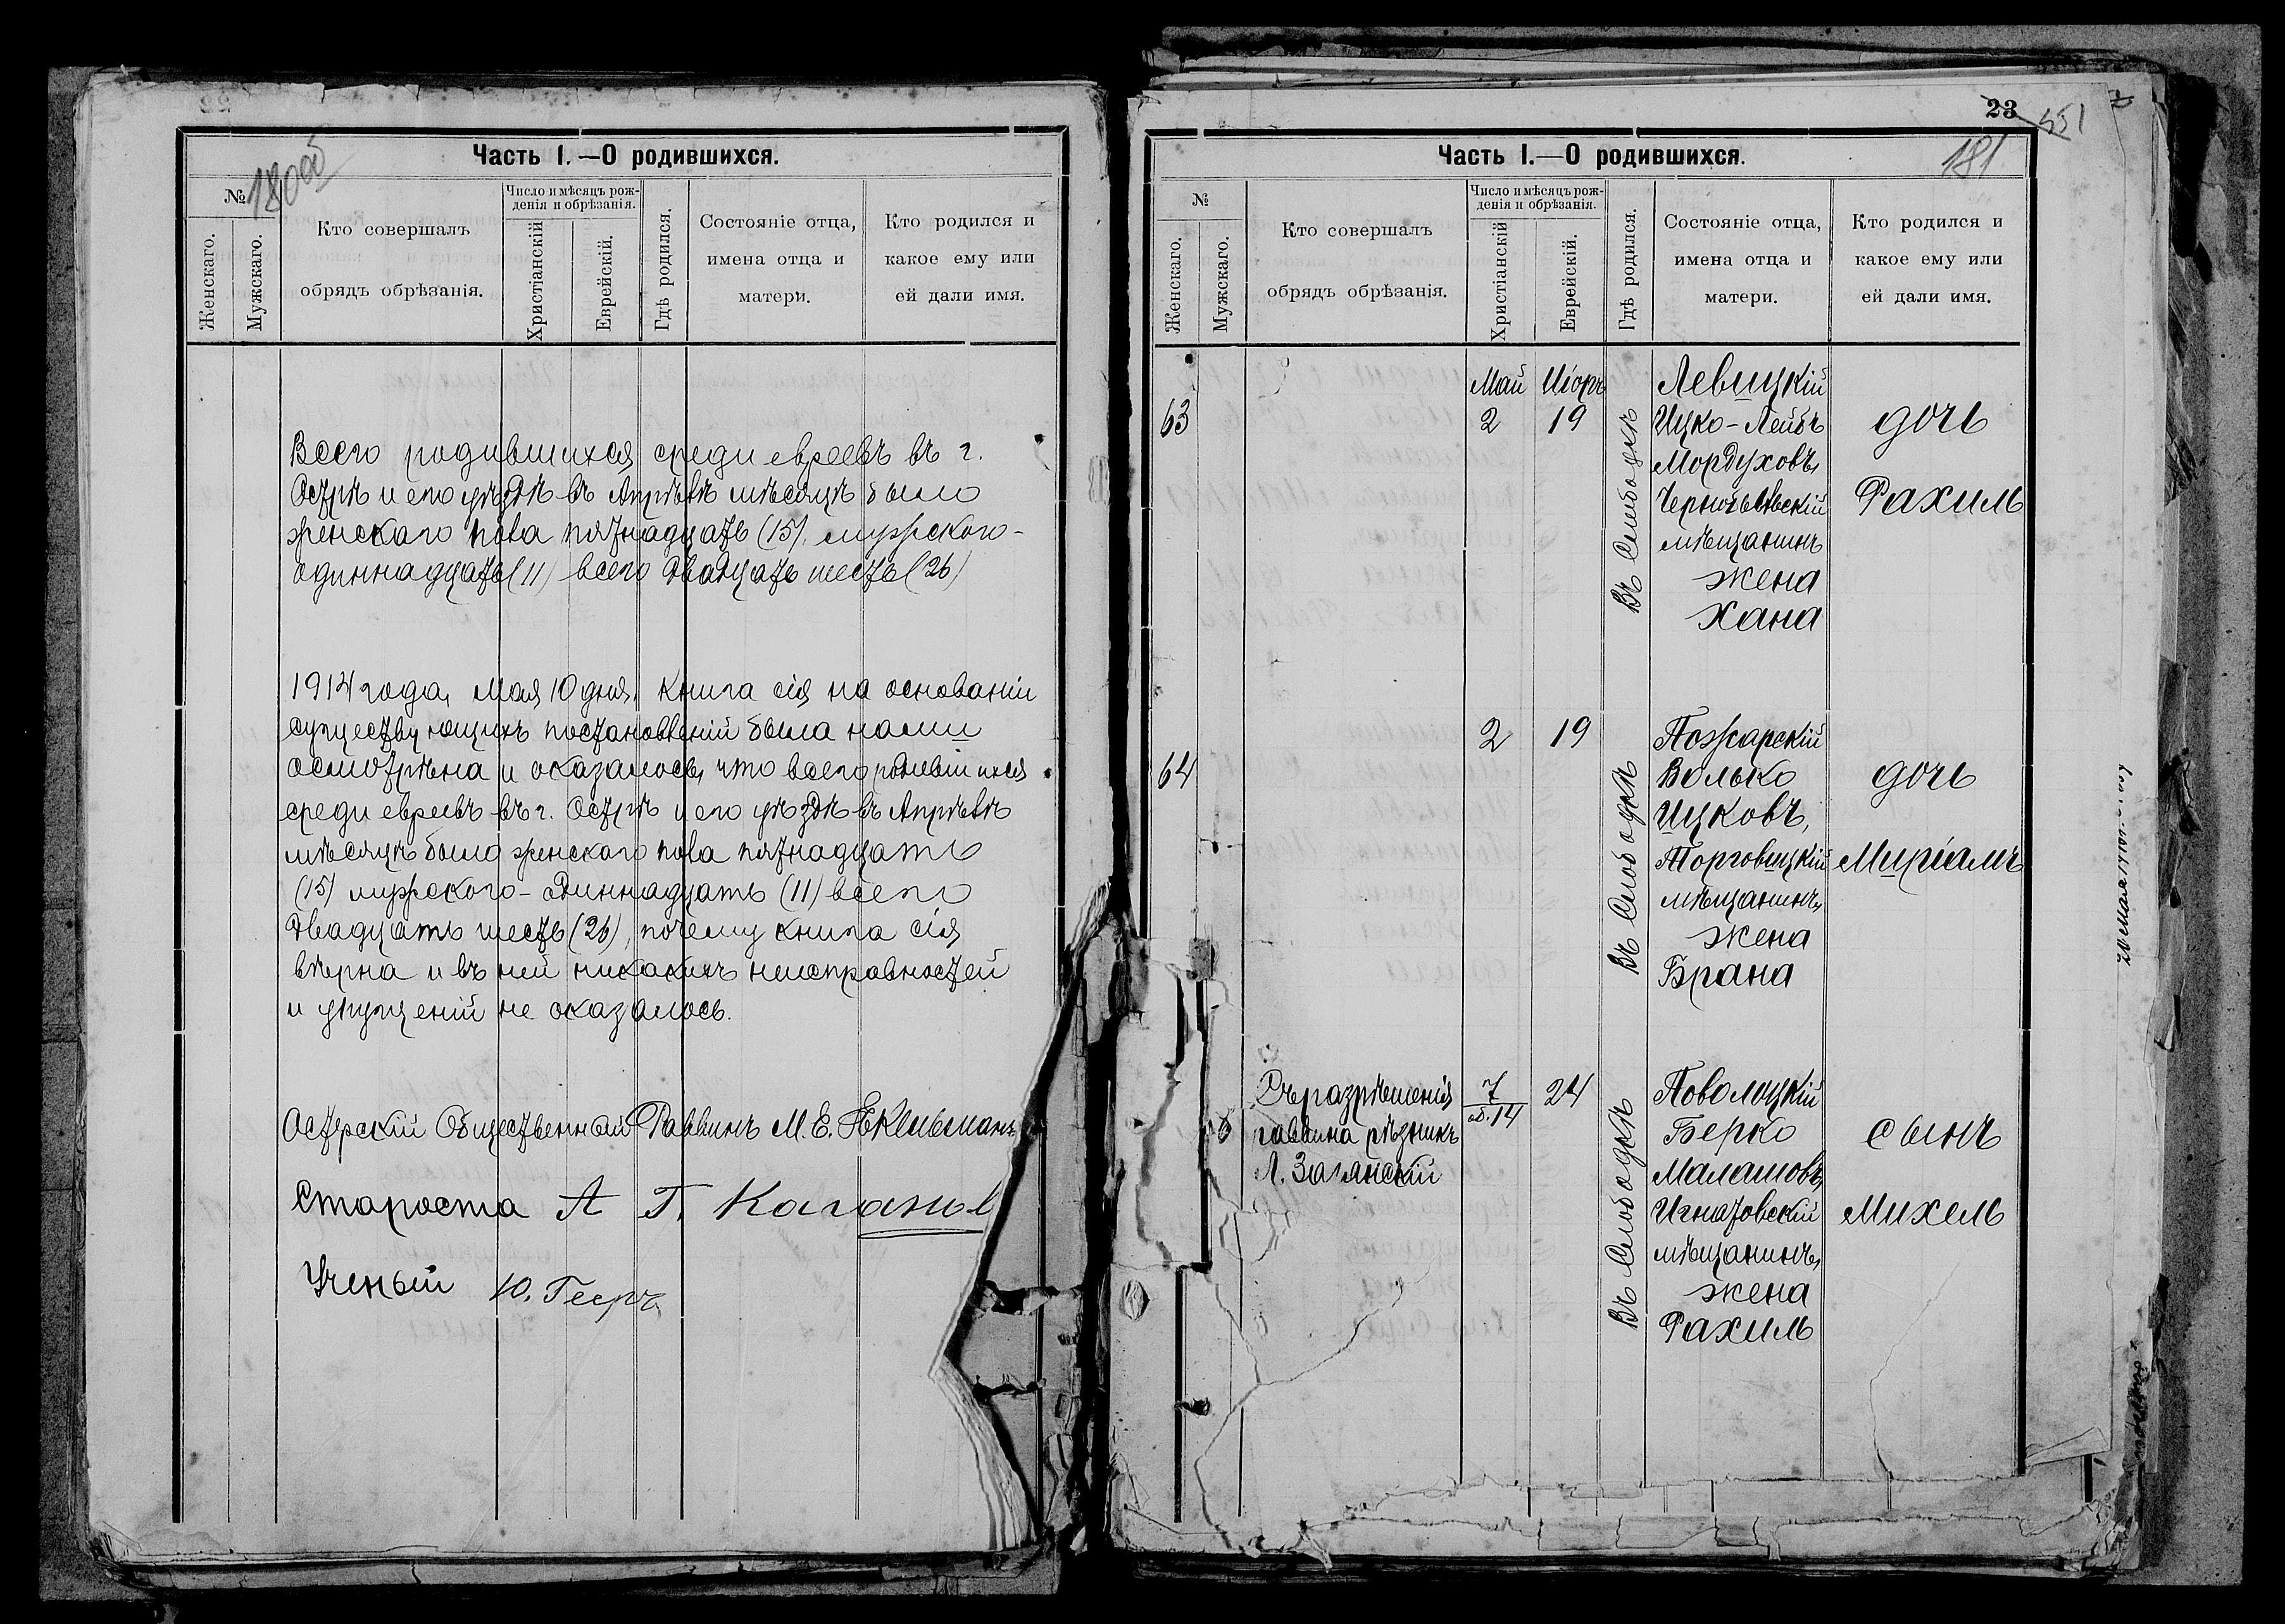 Часть I.—О родившихся.
180об
№
Женскаго.
Мужскаго.
Кто совершалъ
обрядъ обрѣзанія.
Число и мѣсяцъ рож-
денія и обрѣзанія.
Христіанскій
Еврейскій.
Гдѣ родился.
Состояніе отца,
имена отца и
матери.
Кто родился и
какое ему или
ей дали имя.
Всего родившихся среди евреевъ въ г.
Острѣ и его уѣздѣ въ Апрѣлѣ мѣсяцѣ было
женскаго пола пятнадцать (15), мужского -
одиннадцать (11) всего двадцать шесть (26)
1914 года, Мая 10 дня, книга сія на основаніи
существующихъ постановленій была нами
осмотрѣна и оказалось, что всего родившихся
среди евреевъ въ г. Острѣ и его уѣздѣ въ Апрѣлѣ
мѣсяцѣ было женскаго пола пятнадцать
(15) мужского - одиннадцать (11) всего
двадцать шесть (26), почему книга сія
вѣрна и въ ней никакихъ неисправностей
и упущеній не оказалось.
Остерскій Общественный Раввинъ М. Е.
Староста А Г. Каганов
Ученый Ю.
23
551
181
Часть I.—О родившихся.
№
Женскаго.
Мужскаго.
Кто совершалъ
обрядъ обрѣзанія.
Число и мѣсяцъ рож-
денія и обрѣзанія.
Христіанскій
Еврейскій.
Гдѣ родился.
Состояніе отца,
имена отца и
матери.
Кто родился и
какое ему или
ей дали имя.
63
Май Иіоръ
2 19
Въ Слободкѣ
Левицкій
Ицко-Лейбъ
Мордуховъ,
мѣщанинъ
жена
Хана
дочь
Рахиль
64
2 19
Въ Слободкѣ
Пожарскій
Волько
Ицковъ,
Торговицкій
мѣщанинъ,
жена
Брана
дочь
Миріамъ
Съ разрѣшенія
раввина рѣзникъ
Л. Загянскій
7
об. 14
24
Въ Слободкѣ
Поволоцкій
Берко
Малашовъ,
Игнатовскій
мѣщанинъ,
жена
Рахиль
сынъ
Михель